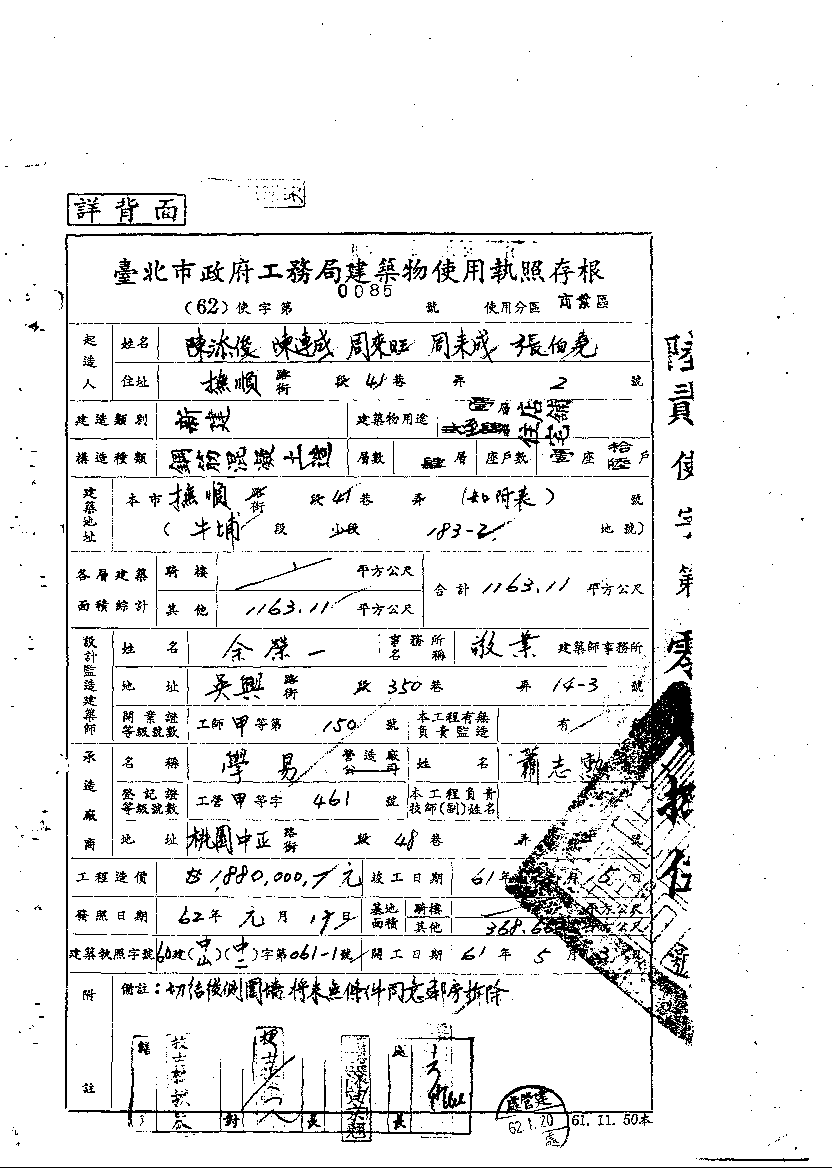 詳背面
臺北市政府工務局建築物使用執照存根
(62) 使字第 0085 號 使用分區 商業區
起造人 姓名 陳添俊 陳連成 周來旺 周來成 張伯堯
住址 撫順 路街 段 41 巷 弄 2 號
建造類別 建築物用途 壹層 店舖 住宅
構造種類 鋼筋混凝土造 層數 肆 層 座戶數 壹 座 拾陸 戶
建築地址 本市 撫順 路街 段 41 巷 弄 (如附表) 號
( 牛埔 段 小段 183-2 地號)
各層建築面積綜計 騎樓 平方公尺 合計 1163.11 平方公尺
其他 1163.11 平方公尺
設計監造建築師 姓名 余榮一 事務所名稱 敬業 建築師事務所
地址 吳興 路街 段 350 巷 弄 14-3 號
開業證等級號數 工師 甲 等第 150 號 本工程有無負責監造 有
承造廠商 名稱 學易 營造廠公司 姓名 蕭志
登記證等級號數 工營 甲 等字 461 號 本工程負責技師(副)姓名
地址 桃園中正 路街 段 48 巷 弄 號
工程造價 1,880,000 元 竣工日期 61 年 5 日
發照日期 62 年 元 月 日 基地面積 騎樓 平方公尺
其他 368.6 平方公尺
建築執照字號 60 建 (中山)(中二) 字第 061-1 號 開工日期 61 年 5 月 3
附註 備註:切結後側圍墻將來無條件同意鄰房拆除
對 長 長
建管處
62.1.20
61.11.50本
使字第零